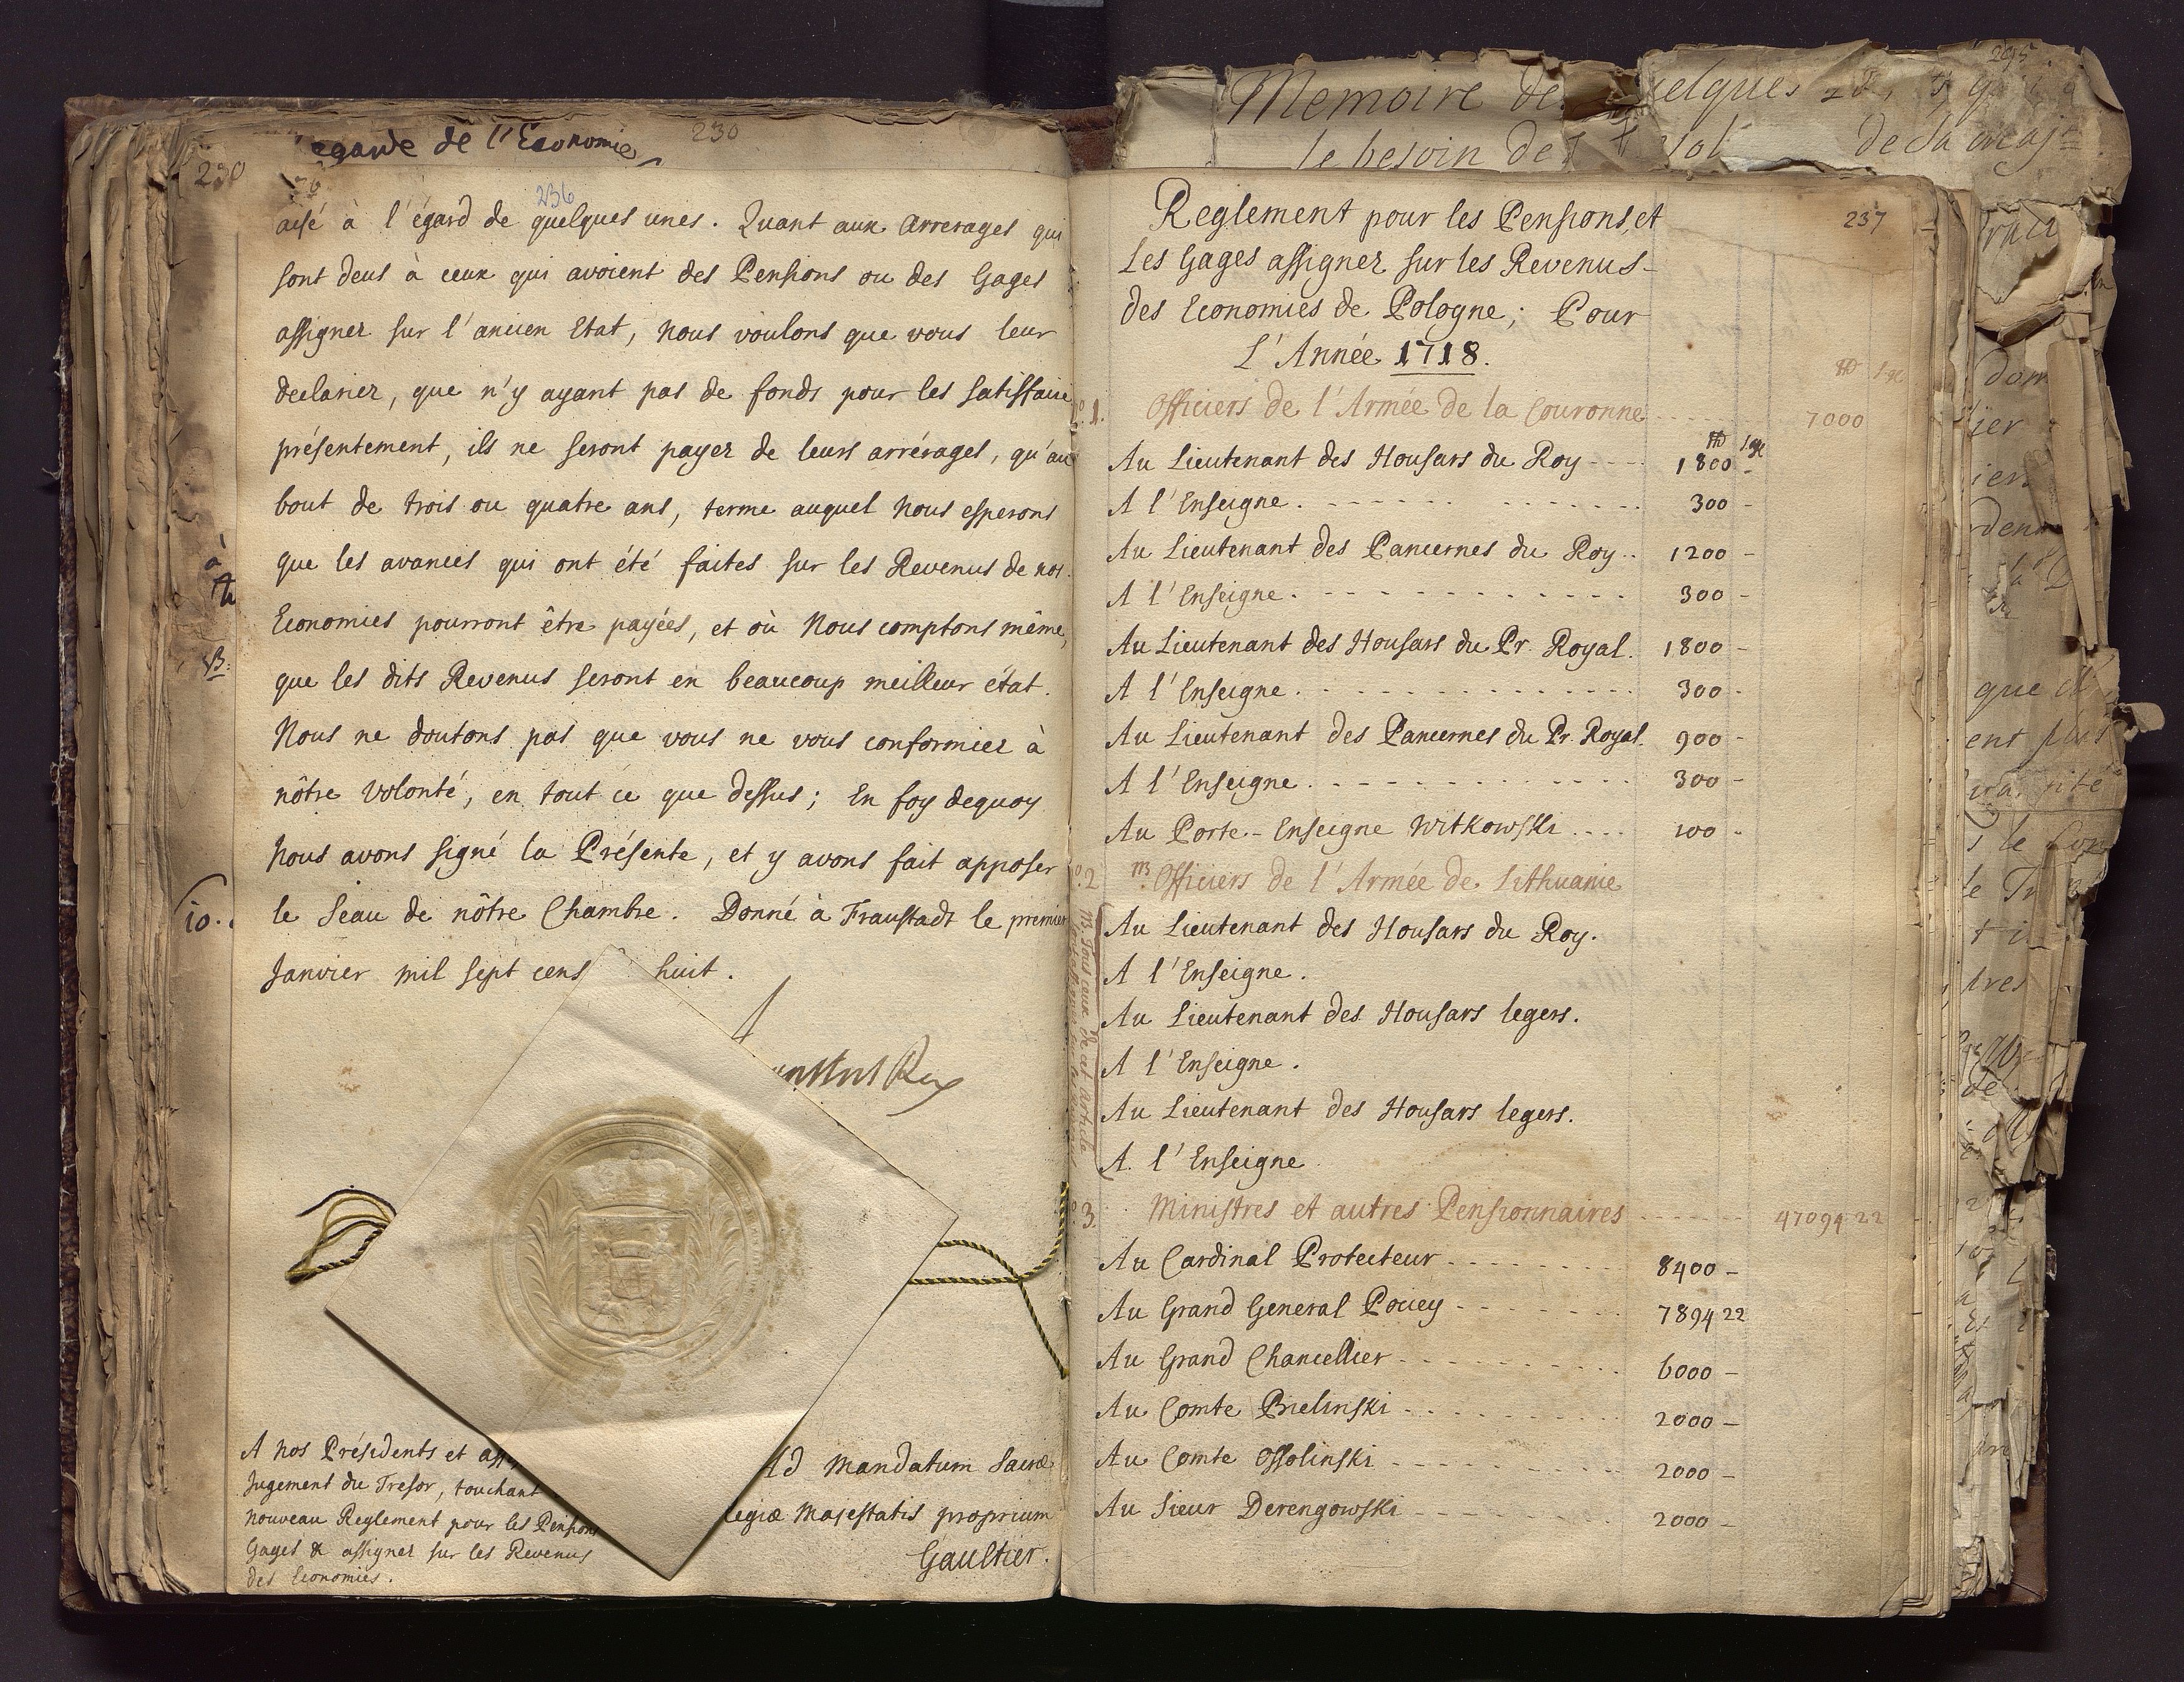 egarde de l'Economie
230
230
236
aisé à l'égard de quelques unes. Quant aux Arrerages qui
sont deus à ceux qui avoient des Pensions ou des Gages
assignez sur l'ancien Etat, nous voulons que vous leur
declariez, que n'y ayant pas de fonds pour les satisfaire
présentement, ils ne seront payez de leurs arrérages, qu'au
bout de trois ou quatre ans, terme auquel Nous esperons
que les avances qui ont été faites sur les Revenus de nos
Economies pourront être payées, et où Nous comptons même,
que les dits Revenus seront en beaucoup meilleur état.
Nous ne doutons pas que vous ne vous conformiez à
nôtre volonté, en tout ce que dessus; En foy dequoy
Nous avons signé la Présente, et y avons fait apposer
le Seau de nôtre Chambre. Donné à Fraustadt le premier
Janvier mil sept cens huit.
Rex
A Nos Présidents et ass
Jugement du Tresor, touchant
nouveau Reglement pour les Pensions
Gages & assignez sur les Revenus
des Economies.
Ad Mandatum Sacræ
Regiæ Majestatis proprium
Gaultier.
à
B.
10.
Memoire de quelques
295
le besoin de
de Sa Maj
237
Reglement pour les Pensions, et
Les Gages assignez sur les Revenus
des Economies de Pologne; Pour
L'Année 1718.
1. Officiers de l'Armée de la Couronne 7000
Au Lieutenant des Housars du Roy 1800 -
A l'Enseigne. 300 -
Au Lieutenant des Pancernes du Roy.. 1200 -
A l'Enseigne. 300 -
Au Lieutenant des Housars du Pr. Royal. 1800 -
A l'Enseigne. 300 -
Au Lieutenant des Pancernes du Pr. Royal. 900 -
A l'Enseigne. 300 -
Au Porte-Enseigne Witkowski.... 100 -
2 Officiers de l'Armée de Lithuanie
Au Lieutenant des Housars du Roy.
A l'Enseigne.
Au Lieutenant des Housars legers.
A l'Enseigne.
Au Lieutenant des Housars legers.
A l'Enseigne
tous ceux de cet Article
3. Ministres et autres Pensionnaires 47094 22
Au Cardinal Protecteur 8400 -
Au Grand General Pociey 7894 22
Au Grand Chancellier 6000 -
Au Comte Bielinski 2000 -
Au Comte Ossolinski 2000 -
Au Sieur Derengowski 2000 -